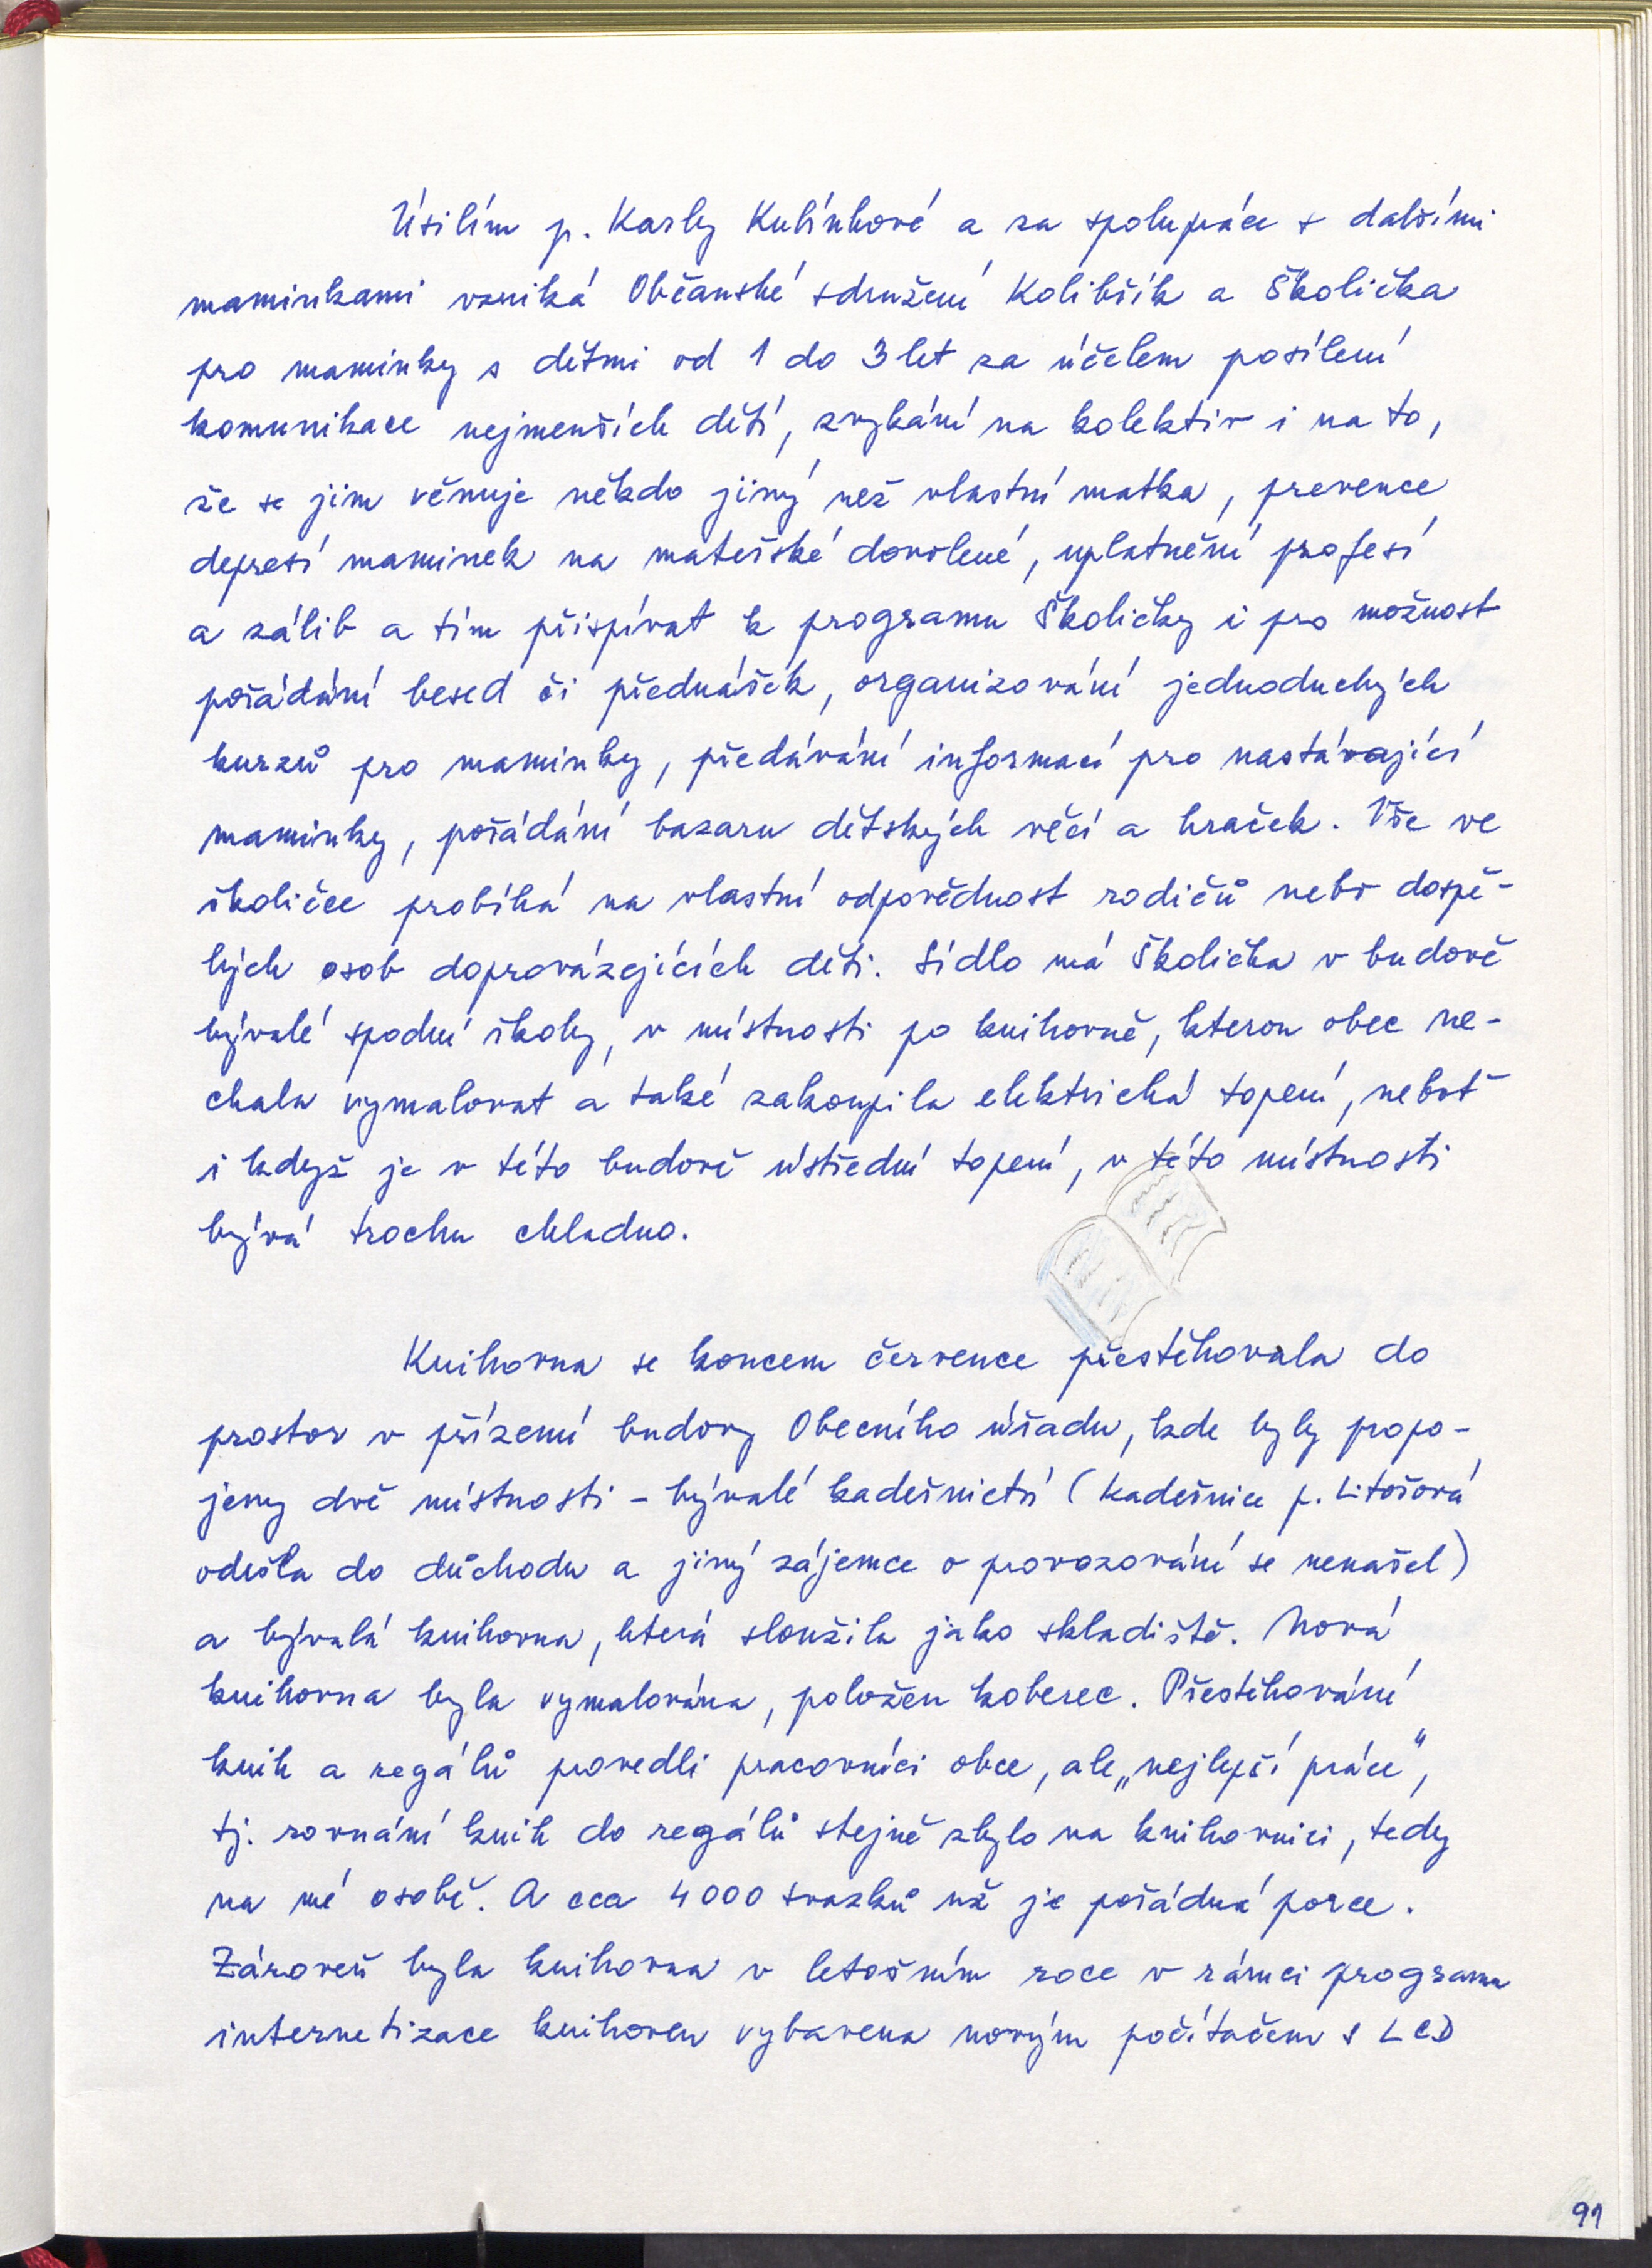 Úsilím p. Karly Kulínkové a za spolupráce s dalšími
maminkami vzniká Občanské sdružení Kolibřík a Školička
pro maminky s dětmi od 1 do 3 let za účelem posílení
komunikace nejmenších dětí, zvykání na kolektiv i na to,
že se jim věnuje někdo jiný než vlastní matka, prevence
depresí maminek na mateřské dovolené, uplatnění profesí
a zálib a tím přispívat k programu Školičky i pro možnost
pořádání besed či přednášek, organizování jednoduchých
kurzů pro maminky, předávání informací pro nastávající
maminky, pořádání bazaru dětských věcí a hraček. Vše ve
školičce probíhá na vlastní odpovědnost rodičů nebo dospě-
lých osob doprovázejících děti. Sídlo má Školička v budově
bývalé spodní školy, v místnosti po knihovně, kterou obec ne-
chala vymalovat a také zakoupila elektrická topení, neboť
i když je v této budově ústřední topení, v této místnosti
bývá trochu chladno.
Knihovna se koncem července přestěhovala do
prostor v přízemí budovy Obecního úřadu, kde byly propo-
jeny dvě místnosti - bývalé kadeřnictví (kadeřnice p. Litošová
odešla do důchodu a jiný zájemce o provozování se nenašel)
a bývalá knihovna, která sloužila jako skladiště. Nová
knihovna byla vymalována, položen koberec. Přestěhování
knih a regálů provedli pracovníci obce, ale „nejlepší práce",
tj. rovnání knih do regálů stejně zbylo na knihovnici, tedy
na mé osobě. A cca 4000 svazků už je pořádná porce.
Zároveň byla knihovna v letošním roce v rámci programu
internetizace knihoven vybavena novým počítačem s LCD
91